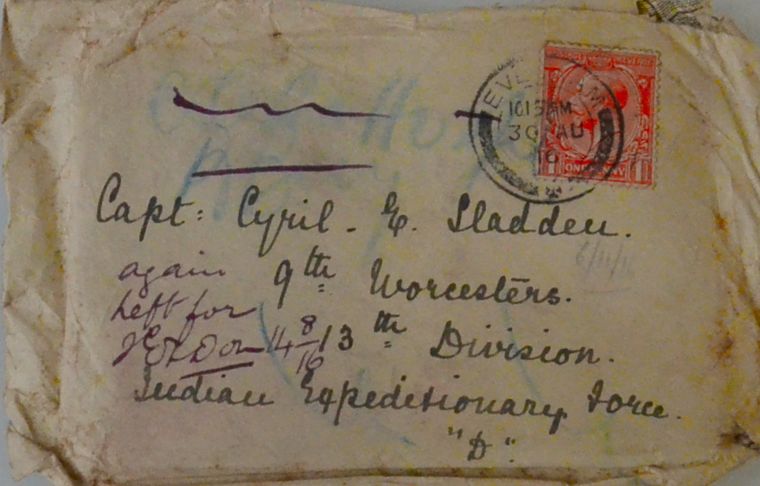 EVESHAM
10 15 AM
30 AU
16
ONE PENNY
Capt: Cyril. E. Sladden.
9th Worcesters.
13th Division.
Indian Expeditionary Force.
"D".
again
left for
IEF D on 14 8/16
6/11/16